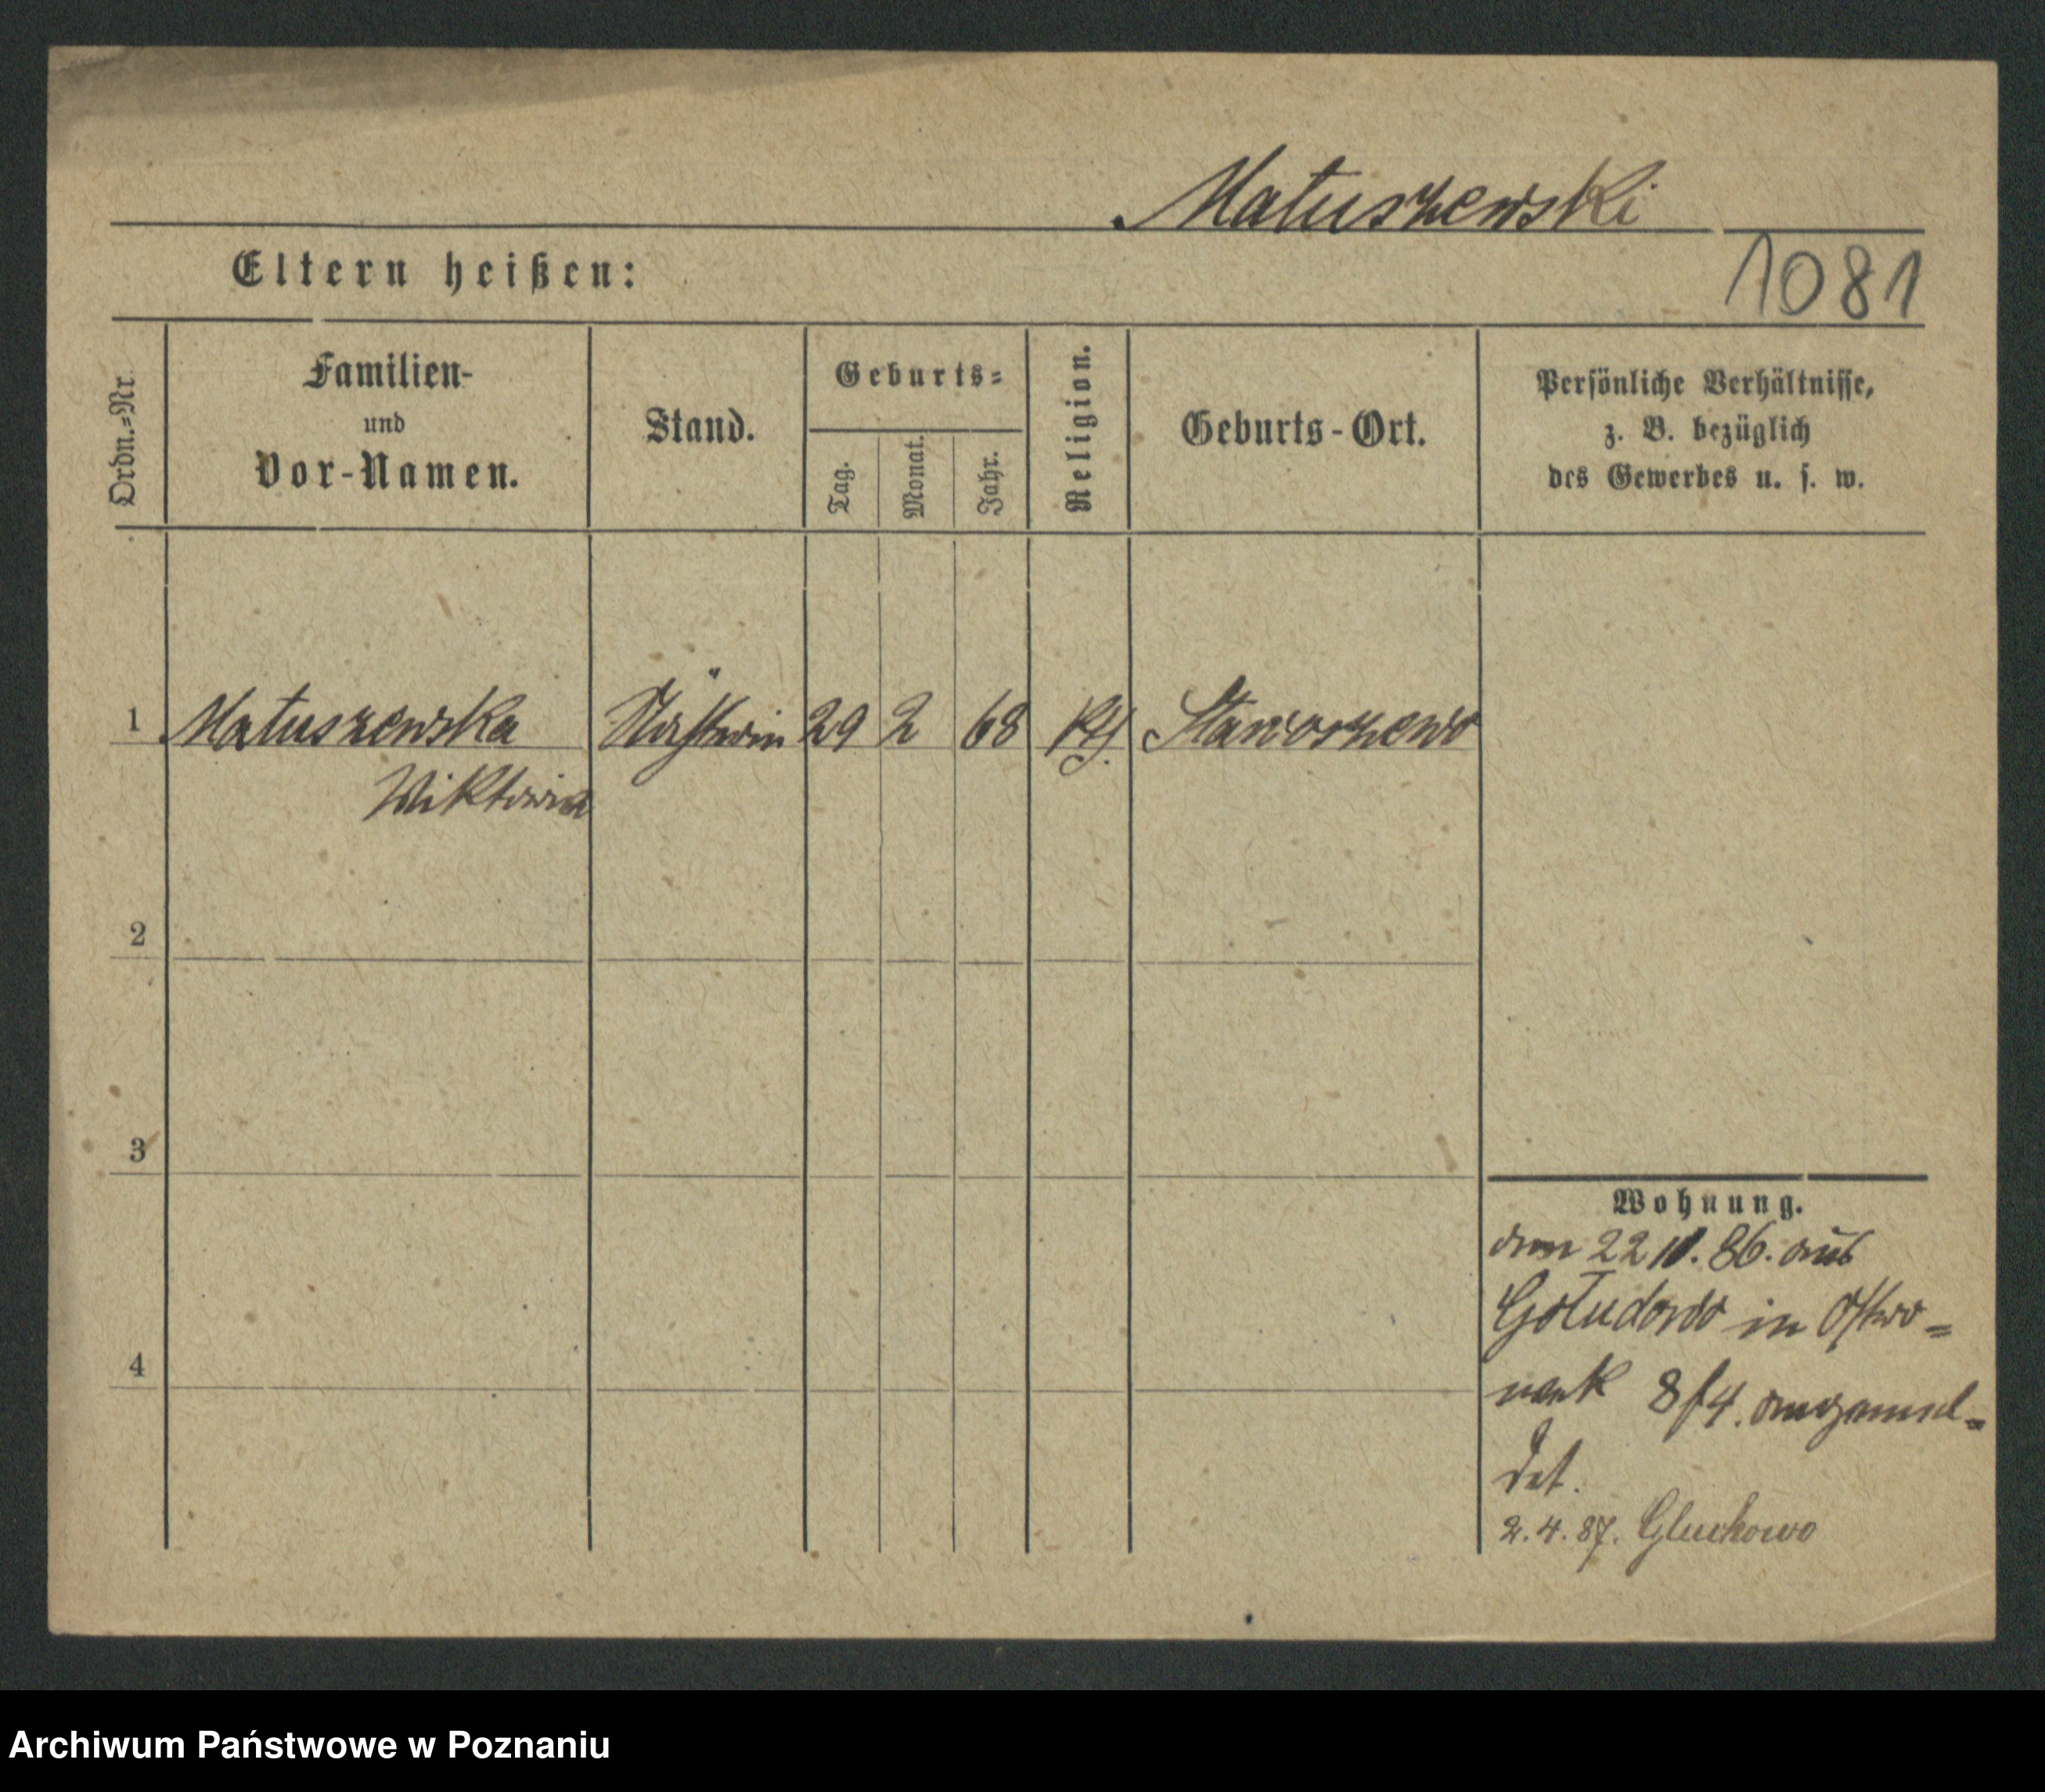 Matuszewski
Eltern heißen:
1081
Ordn.=Nr.
Familien-
und
Vor-Namen.
Stand.
Geburts=
Tag.
Monat.
Jahr.
Religion.
Geburts-Ort.
Persönliche Verhältnisse,
z. B. bezüglich
des Gewerbes u. s. w.
1 Matuszewska 29 2 68 Staroszewo
Wiktoria
2
3
4
Wohnung.
22 11. 86. aus
Gołudowo in Ostro=
8/4. angemel=
det.
2.4.87. Gluchowo
Archiwum Państwowe w Poznaniu